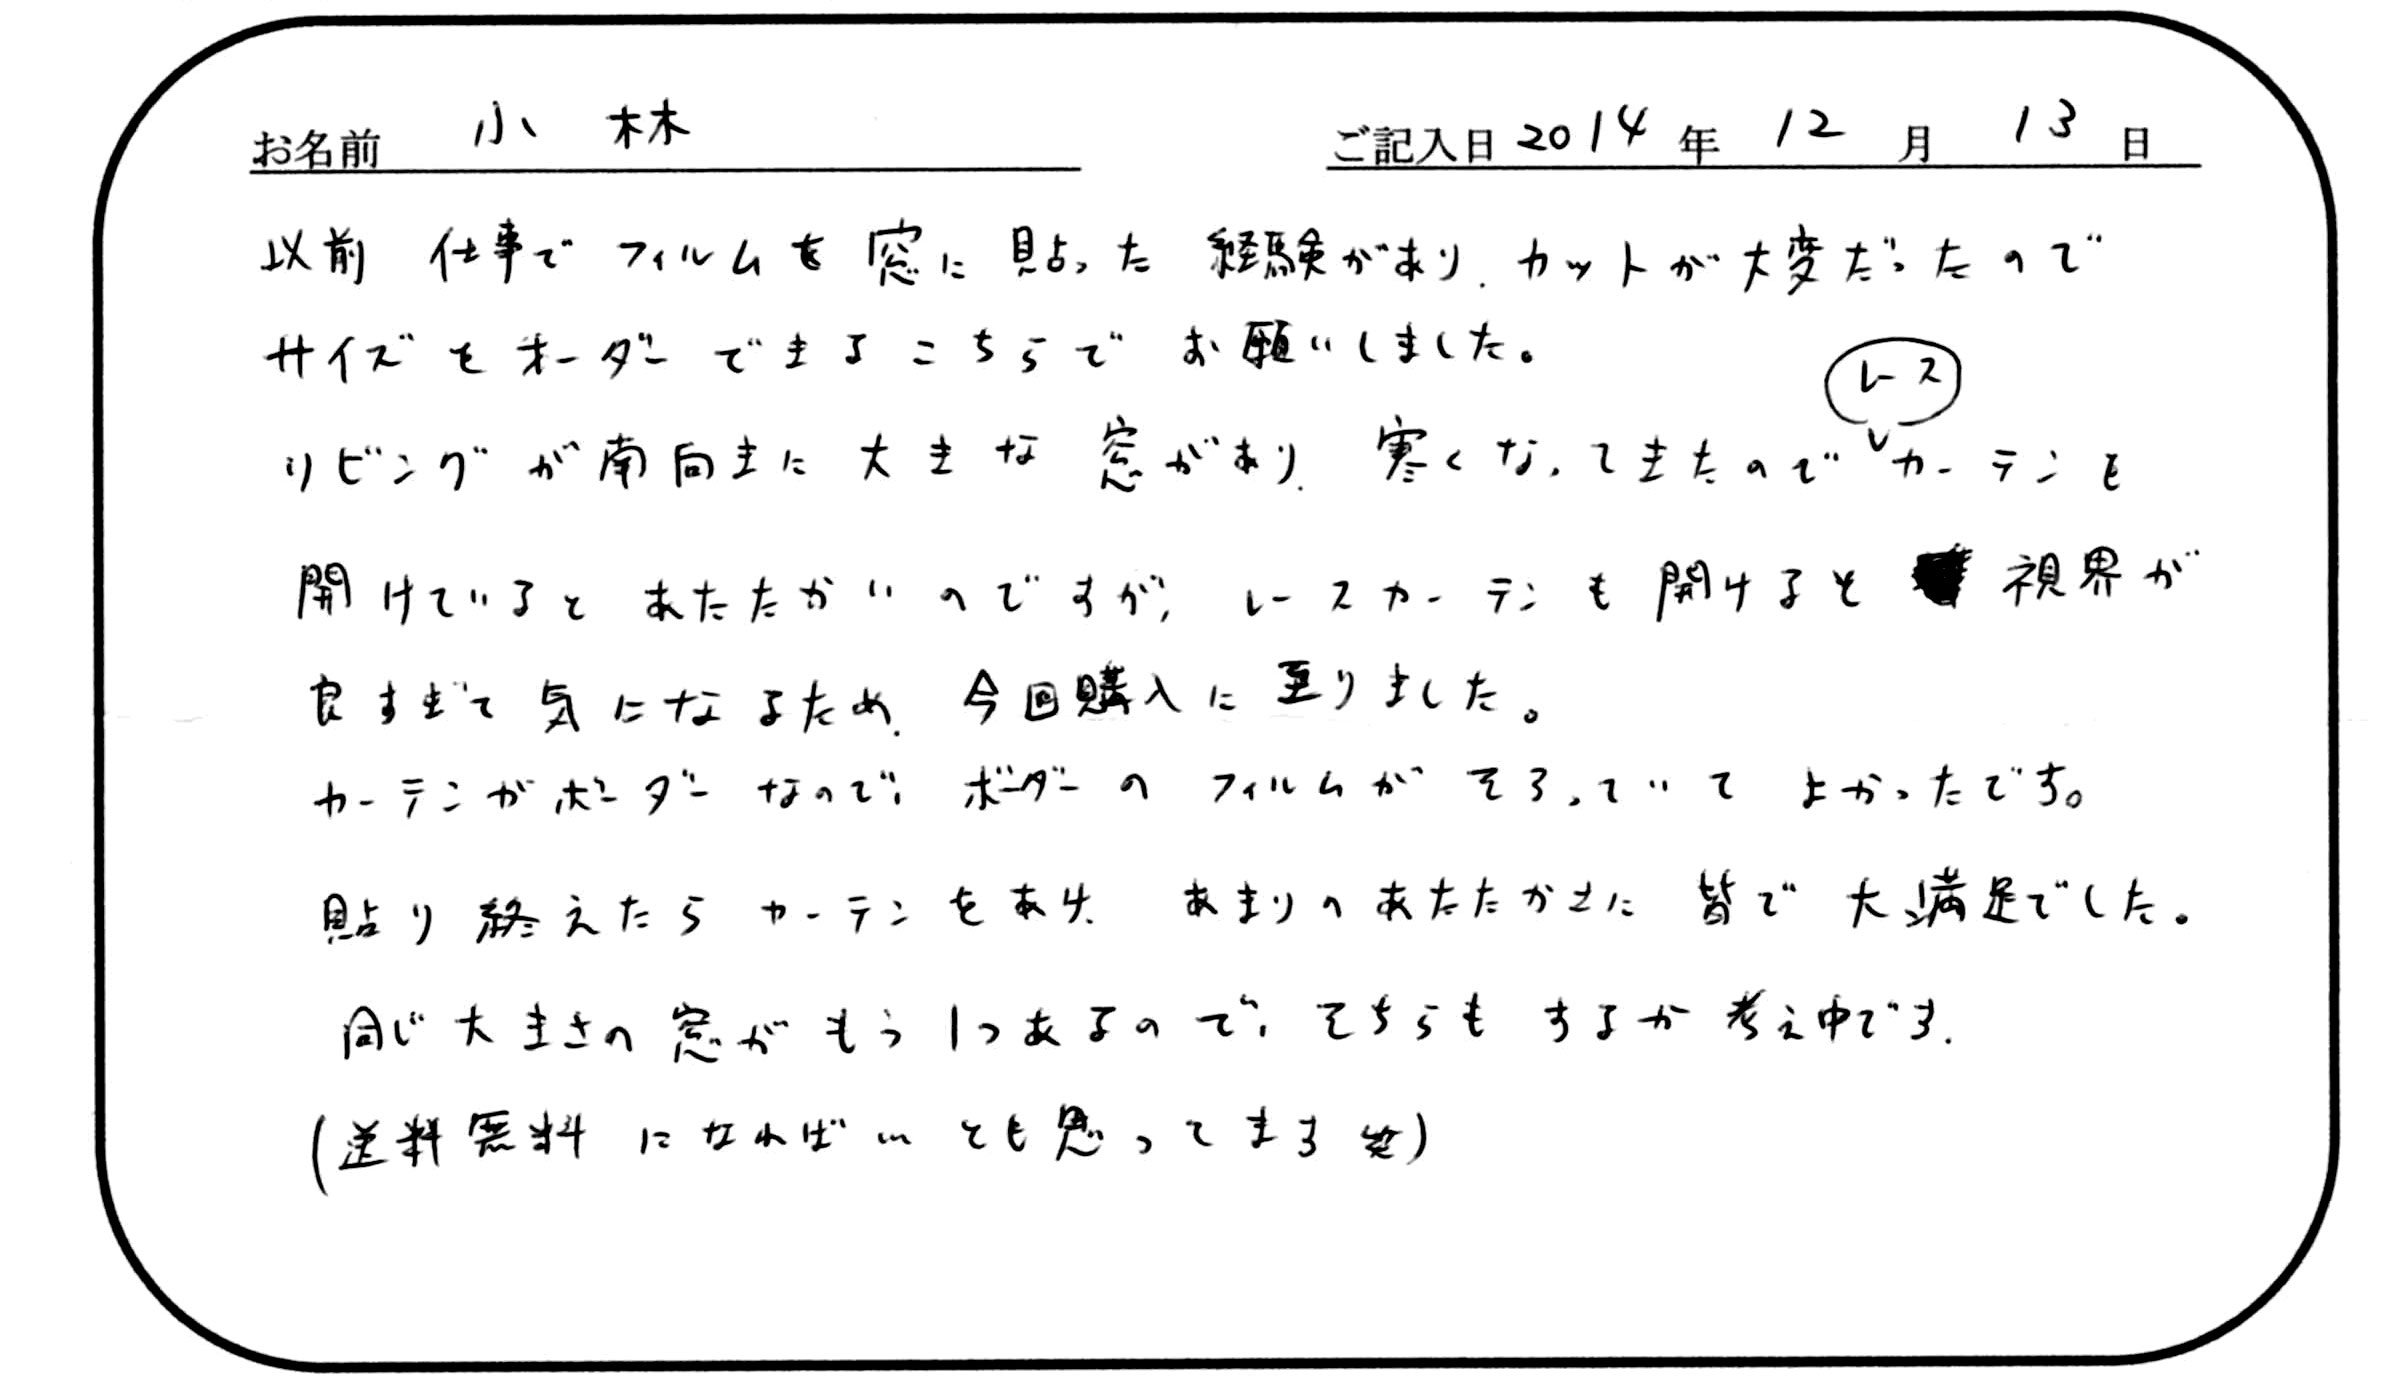 お名前 小林 ご記入日 2014年 12月 13日
以前 仕事で フィルムを 窓に 貼った 経験があり、カットが大変だったので
サイズを オーダー できる こちらで お願いしました。
リビングが南向きに 大きな 窓があり、寒くなってきたので レースカーテンも
開けていると あたたかいのですが、レースカーテンも 開けると 視界が
良すぎて 気になるため、今回購入に 至りました。
カーテンがボーダーなので、ボーダーの フィルムが そろっていて よかったです。
貼り 終えたら カーテンをあけ、あまりのあたたかさに 皆で 大満足でした。
同じ 大きさの 窓が もう 1つあるので、そちらも するか 考え中です。
(送料無料 になれば いい とも思ってます 笑)